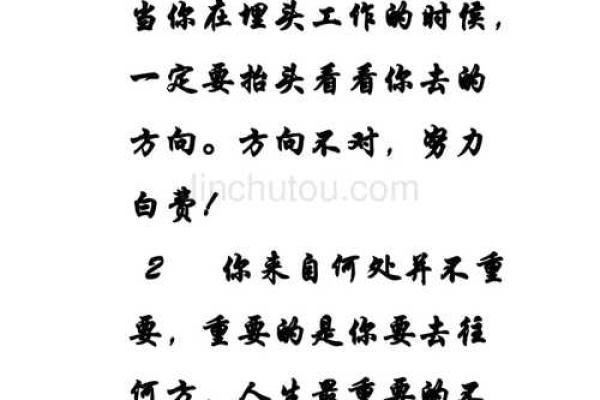 当你在埋头工作的时侯，
一定要抬头看看你去的
方向。方向不对，努力
白费！
jinchutou.com
2 你来自何处并不重
要，重要的是你要去往
何方，人生最重要的不